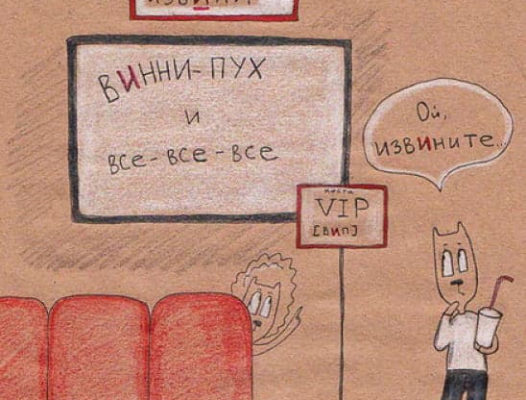 ВИННИ-ПУХ
и
все-все-все
Ой,
извините...
места
VIP
[вип]